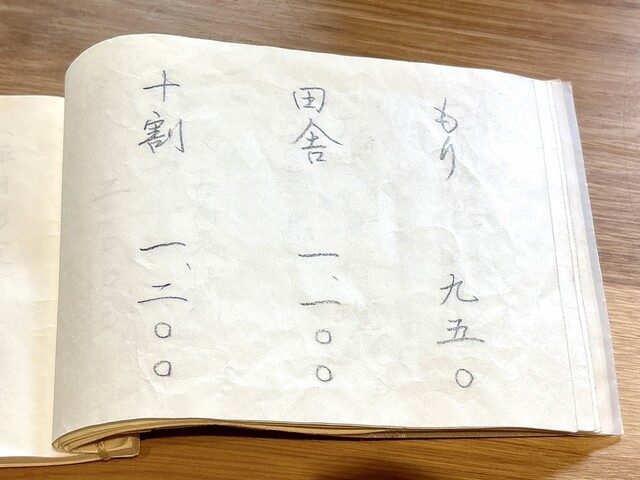 もり 九五〇
田舎 一、一〇〇
十割 一、二〇〇